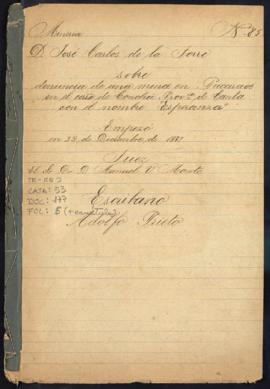 Minería Nº 85
D. José Carlos de la Torre
sobre
denuncia de una mina en
en el cerro de Provª de Canta
con el nombre "Esperanza"
Empezó
en 28 de Diciembre de
Juez
el Sr. Dr. D. Manuel V. Morote
CAJA: 53
DOC: 177
FOL: 5 (+ carátula)
Escribano
Adolfo Prieto